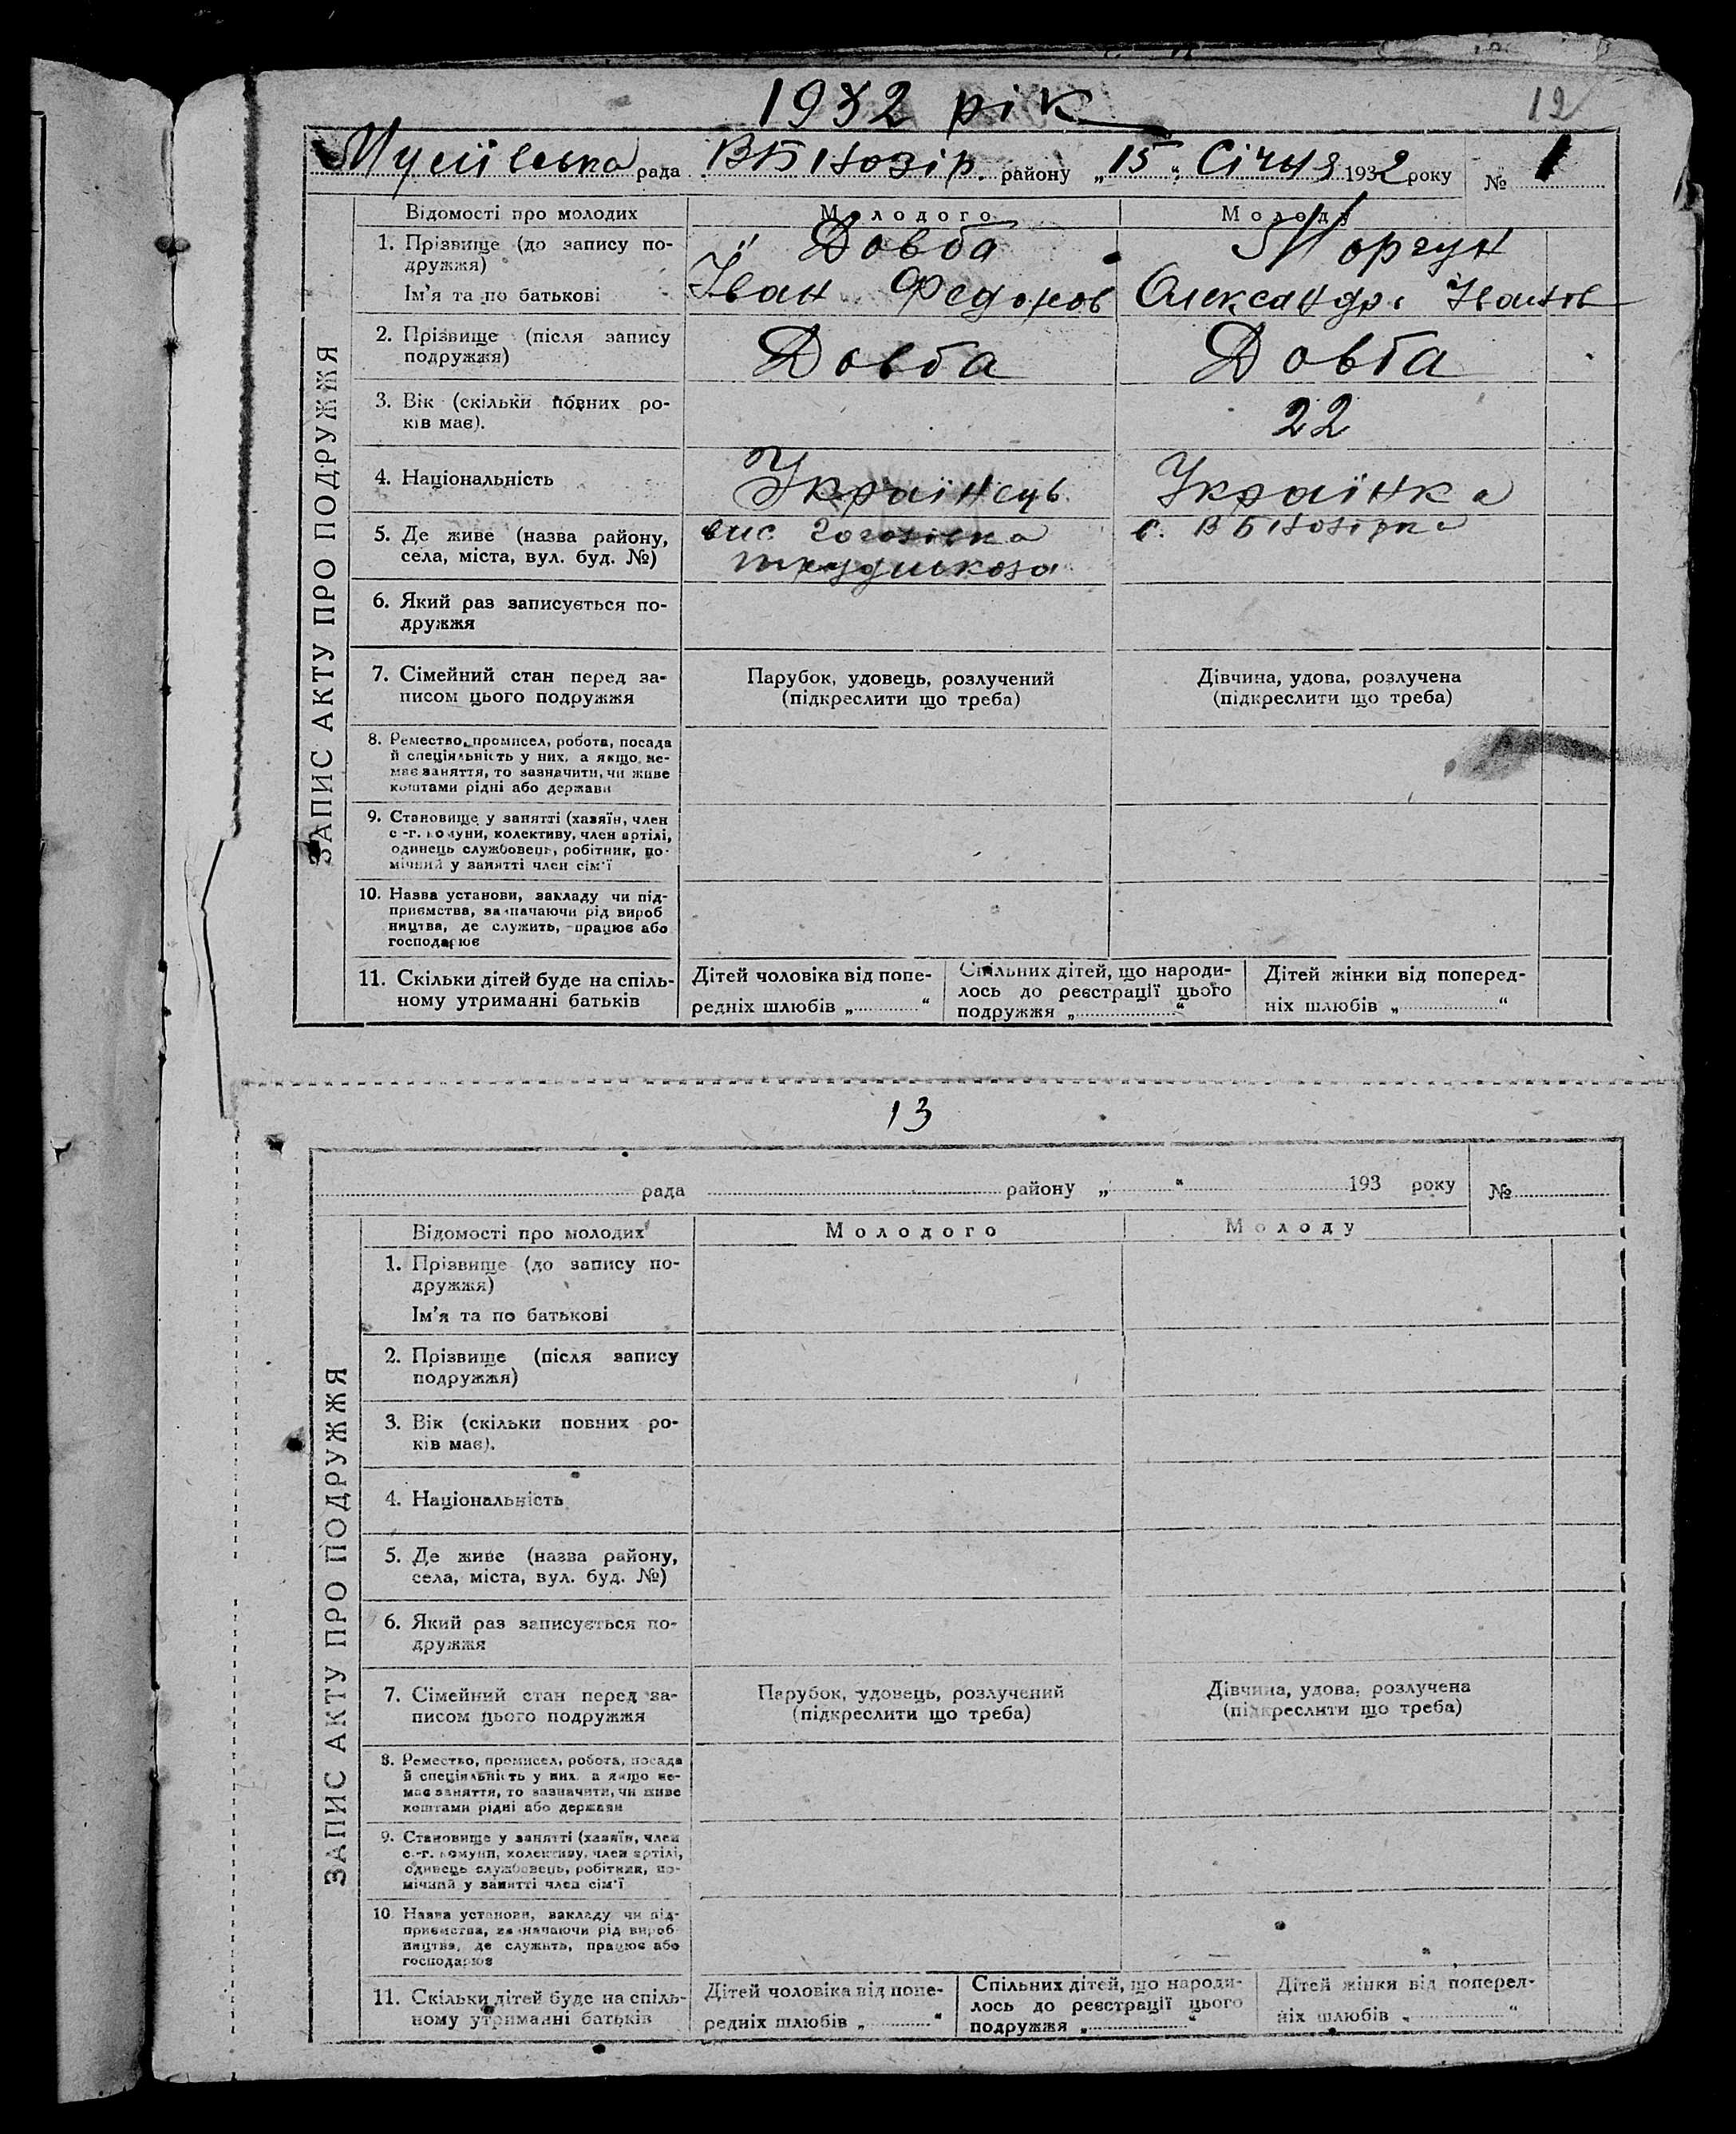 1932 рік
12
Мусіївська рада ВБілозір. району „15“ Січня 1932 року № 1
Відомості про молодих Молодого Молоду
1. Прізвище (до запису по- Довба Моргун
дружжя)
Ім'я та по батькові Іван Федоров Олександра Іванов
2. Прізвище (після запису Довба Довба
подружжя)
3. Вік (скільки повних ро- 22
ків має).
4. Національність Українець Українка
5. Де живе (назва району, вис с. ВБілозірка
села, міста, вул. буд. №)
6. Який раз записується по-
дружжя
7. Сімейний стан перед за- Парубок, удовець, розлучений Дівчина, удова, розлучена
писом цього подружжя (підкреслити що треба) (підкреслити що треба)
8. Ремество, промисел, робота, посада
й спеціяльність у них, а якщо не-
має заняття, то зазначити, чи живе
коштами рідні або держави
9. Становище у занятті (хазяїн, член
с.-г. комуни, колективу, член артілі,
одинець службовець, робітник, по-
мічний у занятті член сім'ї
10. Назва установи, закладу чи під-
приємства, зазначаючи рід вироб
ництва, де служить, працює або
господарює
11. Скільки дітей буде на спіль- Дітей чоловіка від попе- Спільних дітей, що народи- Дітей жінки від поперед-
ному утриманні батьків редніх шлюбів „ “ лось до реєстрації цього ніх шлюбів „ “
подружжя „ “
ЗАПИС АКТУ ПРО ПОДРУЖЖЯ
13
рада району „ “ 193 року №
Відомості про молодих Молодого Молоду
1. Прізвище (до запису по-
дружжя)
Ім'я та по батькові
2. Прізвище (після запису
подружжя)
3. Вік (скільки повних ро-
ків має).
4. Національність
5. Де живе (назва району,
села, міста, вул. буд. №)
6. Який раз записується по-
дружжя
7. Сімейний стан перед за- Парубок, удовець, розлучений Дівчина, удова, розлучена
писом цього подружжя (підкреслити що треба) (підкреслити що треба)
8. Ремество, промисел, робота, посада
й спеціяльність у них, а якщо не-
має заняття, то зазначити, чи живе
коштами рідні або держави
9. Становище у занятті (хазяїн, член
с.-г. комуни, колективу, член артілі,
одинець службовець, робітник, по-
мічний у занятті член сім'ї
10. Назва установи, закладу чи під-
приємства, зазначаючи рід вироб
ництва, де служить, працює або
господарює
11. Скільки дітей буде на спіль- Дітей чоловіка від попе- Спільних дітей, що народи- Дітей жінки від поперед-
ному утриманні батьків редніх шлюбів „ “ лось до реєстрації цього ніх шлюбів „ “
подружжя „ “
ЗАПИС АКТУ ПРО ПОДРУЖЖЯ